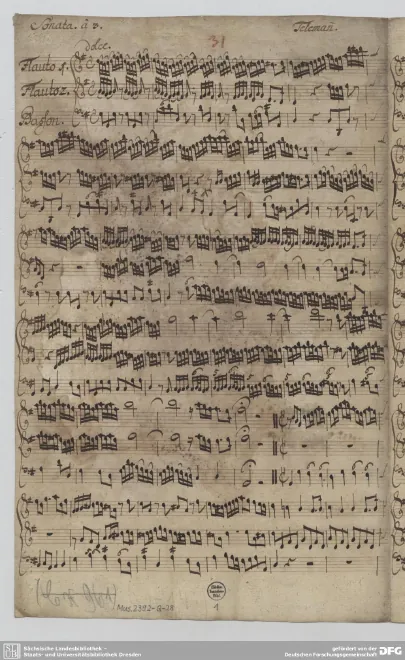 Sonata. à 3. Teleman̄.
31
Dolce.
Flauto 1.
Flauto 2.
Basson.
Mus. 2392-Q-28
1
SLUB Sächsische Landesbibliothek –
Staats- und Universitätsbibliothek Dresden
gefördert von der
Deutschen Forschungsgemeinschaft DFG